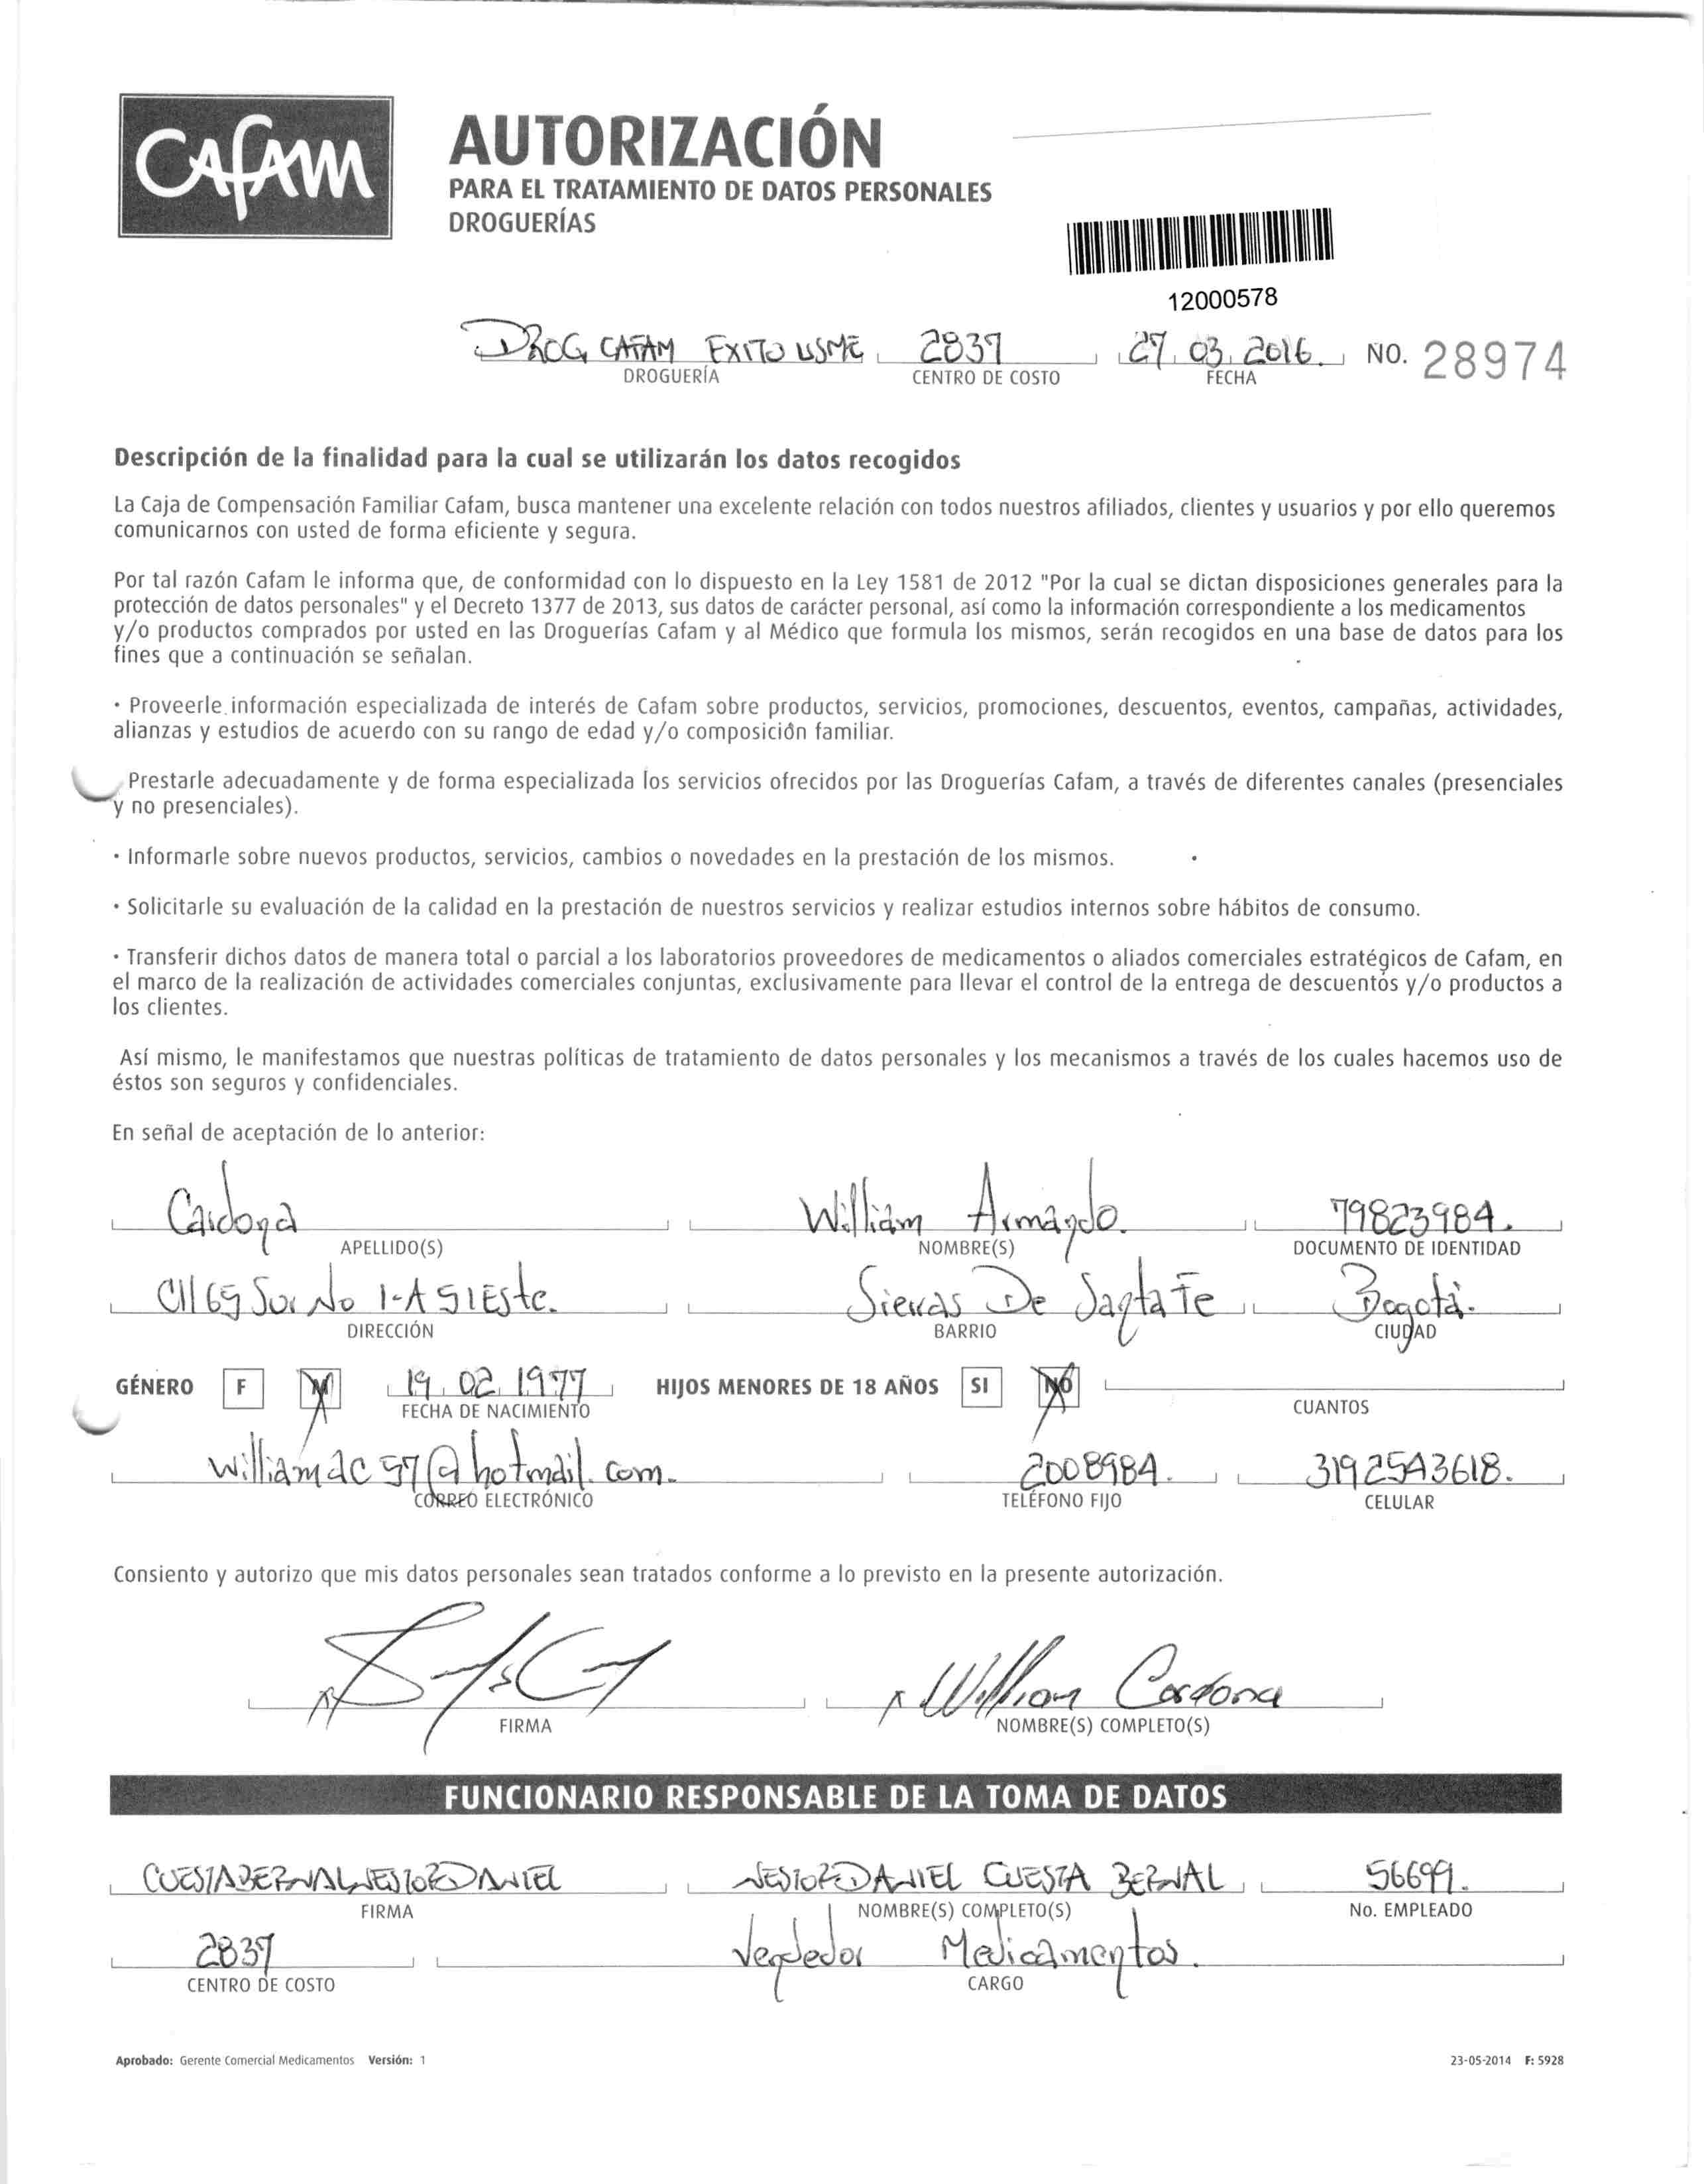 CAFAM
AUTORIZACIÓN
PARA EL TRATAMIENTO DE DATOS PERSONALES
DROGUERÍAS
12000578
DROG CAFAM EXITO USME 2837 27.03.2016. NO. 28974
DROGUERÍA CENTRO DE COSTO FECHA
Descripción de la finalidad para la cual se utilizarán los datos recogidos
La Caja de Compensación Familiar Cafam, busca mantener una excelente relación con todos nuestros afiliados, clientes y usuarios y por ello queremos
comunicarnos con usted de forma eficiente y segura.
Por tal razón Cafam le informa que, de conformidad con lo dispuesto en la Ley 1581 de 2012 "Por la cual se dictan disposiciones generales para la
protección de datos personales" y el Decreto 1377 de 2013, sus datos de carácter personal, así como la información correspondiente a los medicamentos
y/o productos comprados por usted en las Droguerías Cafam y al Médico que formula los mismos, serán recogidos en una base de datos para los
fines que a continuación se señalan.
· Proveerle información especializada de interés de Cafam sobre productos, servicios, promociones, descuentos, eventos, campañas, actividades,
alianzas y estudios de acuerdo con su rango de edad y/o composición familiar.
Prestarle adecuadamente y de forma especializada los servicios ofrecidos por las Droguerías Cafam, a través de diferentes canales (presenciales
y no presenciales).
· Informarle sobre nuevos productos, servicios, cambios o novedades en la prestación de los mismos.
· Solicitarle su evaluación de la calidad en la prestación de nuestros servicios y realizar estudios internos sobre hábitos de consumo.
· Transferir dichos datos de manera total o parcial a los laboratorios proveedores de medicamentos o aliados comerciales estratégicos de Cafam, en
el marco de la realización de actividades comerciales conjuntas, exclusivamente para llevar el control de la entrega de descuentos y/o productos a
los clientes.
Así mismo, le manifestamos que nuestras políticas de tratamiento de datos personales y los mecanismos a través de los cuales hacemos uso de
éstos son seguros y confidenciales.
En señal de aceptación de lo anterior:
Cardona William Armando. 79823984.
APELLIDO(S) NOMBRE(S) DOCUMENTO DE IDENTIDAD
Cll 69 Sur No 1-A 51 Este. Sierras De Santa Fe Bogotá.
DIRECCIÓN BARRIO CIUDAD
GÉNERO F M 19.02.1977 HIJOS MENORES DE 18 AÑOS SI NO
FECHA DE NACIMIENTO CUANTOS
williamac57@hotmail.com. 2008984. 3192543618.
CORREO ELECTRÓNICO TELÉFONO FIJO CELULAR
Consiento y autorizo que mis datos personales sean tratados conforme a lo previsto en la presente autorización.
William Cardona
FIRMA NOMBRE(S) COMPLETO(S)
FUNCIONARIO RESPONSABLE DE LA TOMA DE DATOS
CUESTA BERNAL NESTOR DANIEL NESTOR DANIEL CUESTA BERNAL 56699.
FIRMA NOMBRE(S) COMPLETO(S) No. EMPLEADO
2837 Vendedor Medicamentos.
CENTRO DE COSTO CARGO
Aprobado: Gerente Comercial Medicamentos Versión: 1 23-05-2014 F: 5928